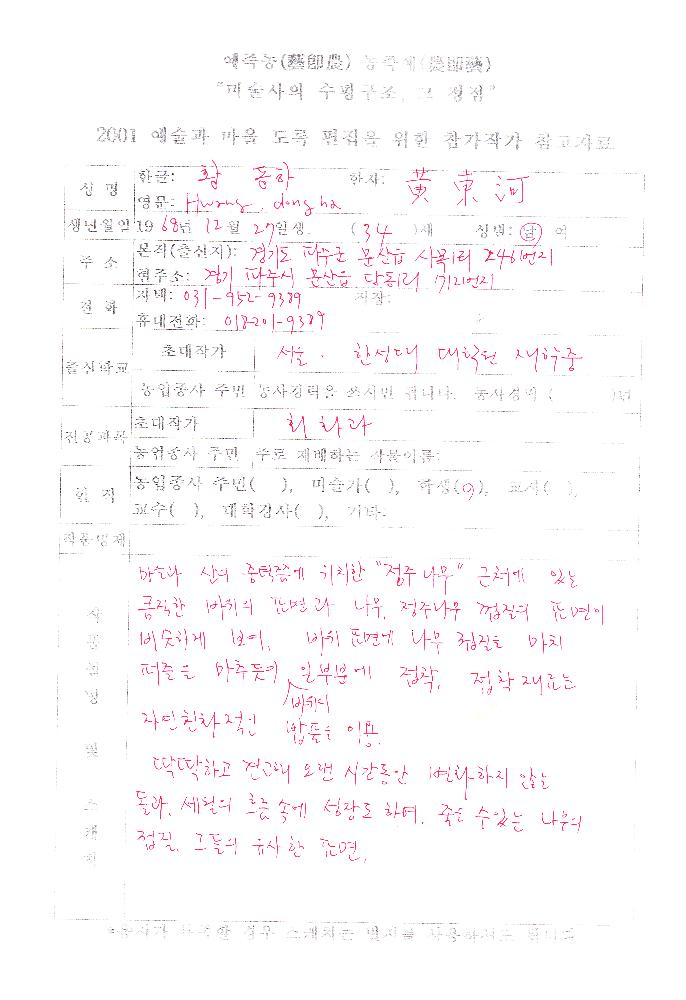 예즉농(藝卽農) 농즉예(農卽藝)
"미술사의 수평구조, 그 정점"
2001 예술과 마을 도록 편집을 위한 참가작가 참고자료
성 명 한글: 황 동하 한자: 黃 東 河
영문: Hwang, dong ha
생년월일 1968년 12월 27일생. (34)세 성별: 남 여
주 소 본적(출신지): 경기도 파주군 문산읍 사목1리 246번지
현주소: 경기 파주시 문산읍 당동1리 171번지
전 화 자택: 031-952-9389 직장:
휴대전화: 018-201-9389
출신학교 초대작가 서울. 한성대 대학원 재학중
농업종사 주민 농사경력을 쓰시면 됩니다. 농사경력 ( )년
전공과목 초대작가 회화과
농업종사 주민 주로 재배하는 작물이름:
현 직 농업종사 주민( ), 미술가( ), 학생(O), 교사( ),
교수( ), 대학강사( ), 기타.
작품명제
작 품 설 명 및 스 케 치
마을과 산의 중턱쯤에 위치한 "정주나무" 근처에 있는
큼직한 바위의 표면과 나무, 정주나무 껍질의 표면이
비슷하게 보여, 바위 표면에 나무 껍질을 마치
퍼즐을 마추듯이 바위의 일부분에 접착, 접착재료는
자연친화적인 밥풀을 이용.
딱딱하고 견고해 오랜 시간동안 변화하지 않는
돌과, 세월의 흐름 속에 성장도 하며, 죽을 수있는 나무의
껍질, 그들의 유사한 표면.
*용지가 부족할 경우 스케치는 별지를 사용하셔도 됩니다